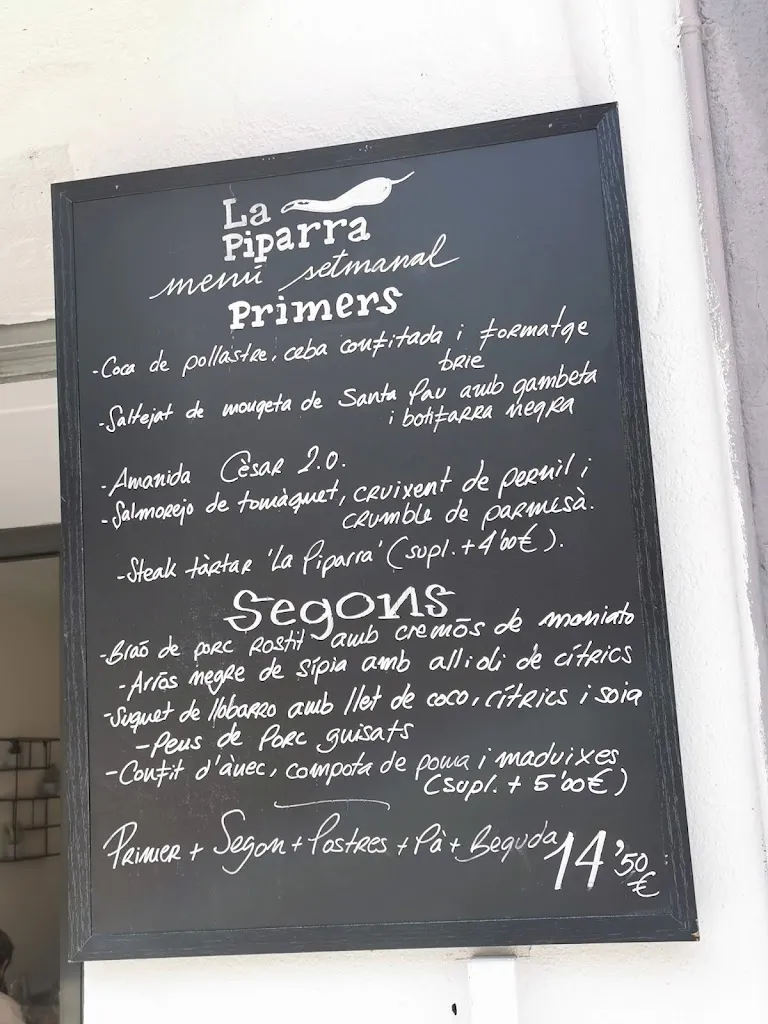 La
Piparra
menú setmanal
Primers
-Coca de pollastre, ceba confitada i formatge
brie
-Saltejat de mongeta de Santa Pau amb gambeta
i botifarra negra
-Amanida Cèsar 2.0.
-Salmorejo de tomàquet, cruixent de pernil i
crumble de parmesà.
-Steak tàrtar 'La Piparra' (supl. + 4'00€).
Segons
-Braó de porc rostit amb cremós de moniato
-Arròs negre de sípia amb allioli de cítrics
-Suquet de llobarro amb llet de coco, cítrics i soia
-Peus de porc guisats
-Confit d'ànec, compota de poma i maduixes
(supl. + 5'00€)
Primer + Segon + Postres + Pà + Beguda 14'50
€